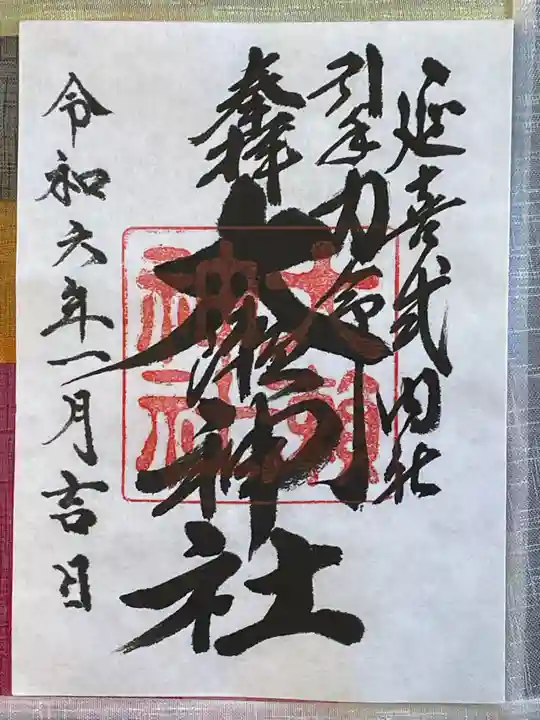 延喜式内社
引手力命
奉拝
大瀬神社
令和六年一月吉日
大瀬
神社